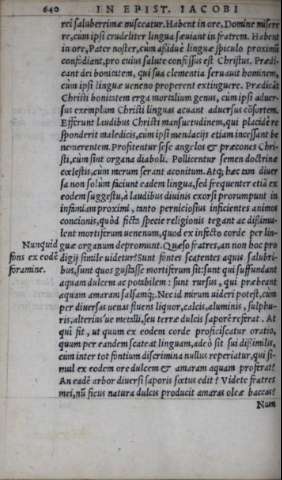 640 IN EPIST. IACOBI
rei saluberrimæ misceatur. Habent in ore, Domine misere
re, cùm ipsi crudeliter lingua sæuiant in fratrem. Habent
in ore, Pater noster, cùm assiduè linguæ spiculo proximū
confodiant, pro cuius salute confossus est Christus. Prædi-
cant dei bonitatem, qui sua clementia seruauit hominem,
cùm ipsi linguæ ueneno properent extinguere. Prædicāt
Christi bonitatem erga mortalium genus, cùm ipsi aduer-
sus exemplum Christi linguas acuant aduersus cōsortem.
Efferunt laudibus Christi mansuetudinem, qui placidè re
sponderit maledicis, cùm ipsi mendacijs etiam incessant be
nemerentem. Profitentur sese angelos & præcones Chri-
sti, cùm sint organa diaboli. Pollicentur semen doctrinæ
cœlestis, cùm merum serant aconitum. Atq; hæc tam diuer
sa non solùm faciunt eadem lingua, sed frequenter etiā ex
eodem suggestu, à laudibus diuinis exorsi prorumpunt in
infamiam proximi, tanto perniciosius inficientes animos
concionis, quòd ficta specie religionis tegant ac dissimu-
lent mortiferum uenenum, quod ex infecto corde per lin-
Nunquid guæ organum depromunt. Quæso fratres, an non hoc pro
fons ex eodē digij simile uidetur? Sunt fontes scatentes aquis salubri-
foramine. bus, sunt quos gustasse mortiferum sit: sunt qui suffundant
aquam dulcem ac potabilem: sunt rursus, qui præbeant
aquam amaram salsamq́;. Nec id mirum uideri potest, cùm
per diuersas uenas fluens liquor, calcis, aluminis, sulphu-
ris, alteriusue metalli, seu terræ dulcis saporē referat. At
qui fit, ut quum ex eodem corde proficiscatur oratio,
quum per eandem scateat linguam, adeò sit sui dissimilis,
cùm inter tot fontium discrimina nullus reperiatur, qui si-
mul ex eodem ore dulcem & amaram aquam proferat?
An eadē arbor diuersi saporis fœtus edit? Videte fratres
mei, nū ficus natura dulcis producit amaras oleæ baccas?
Num